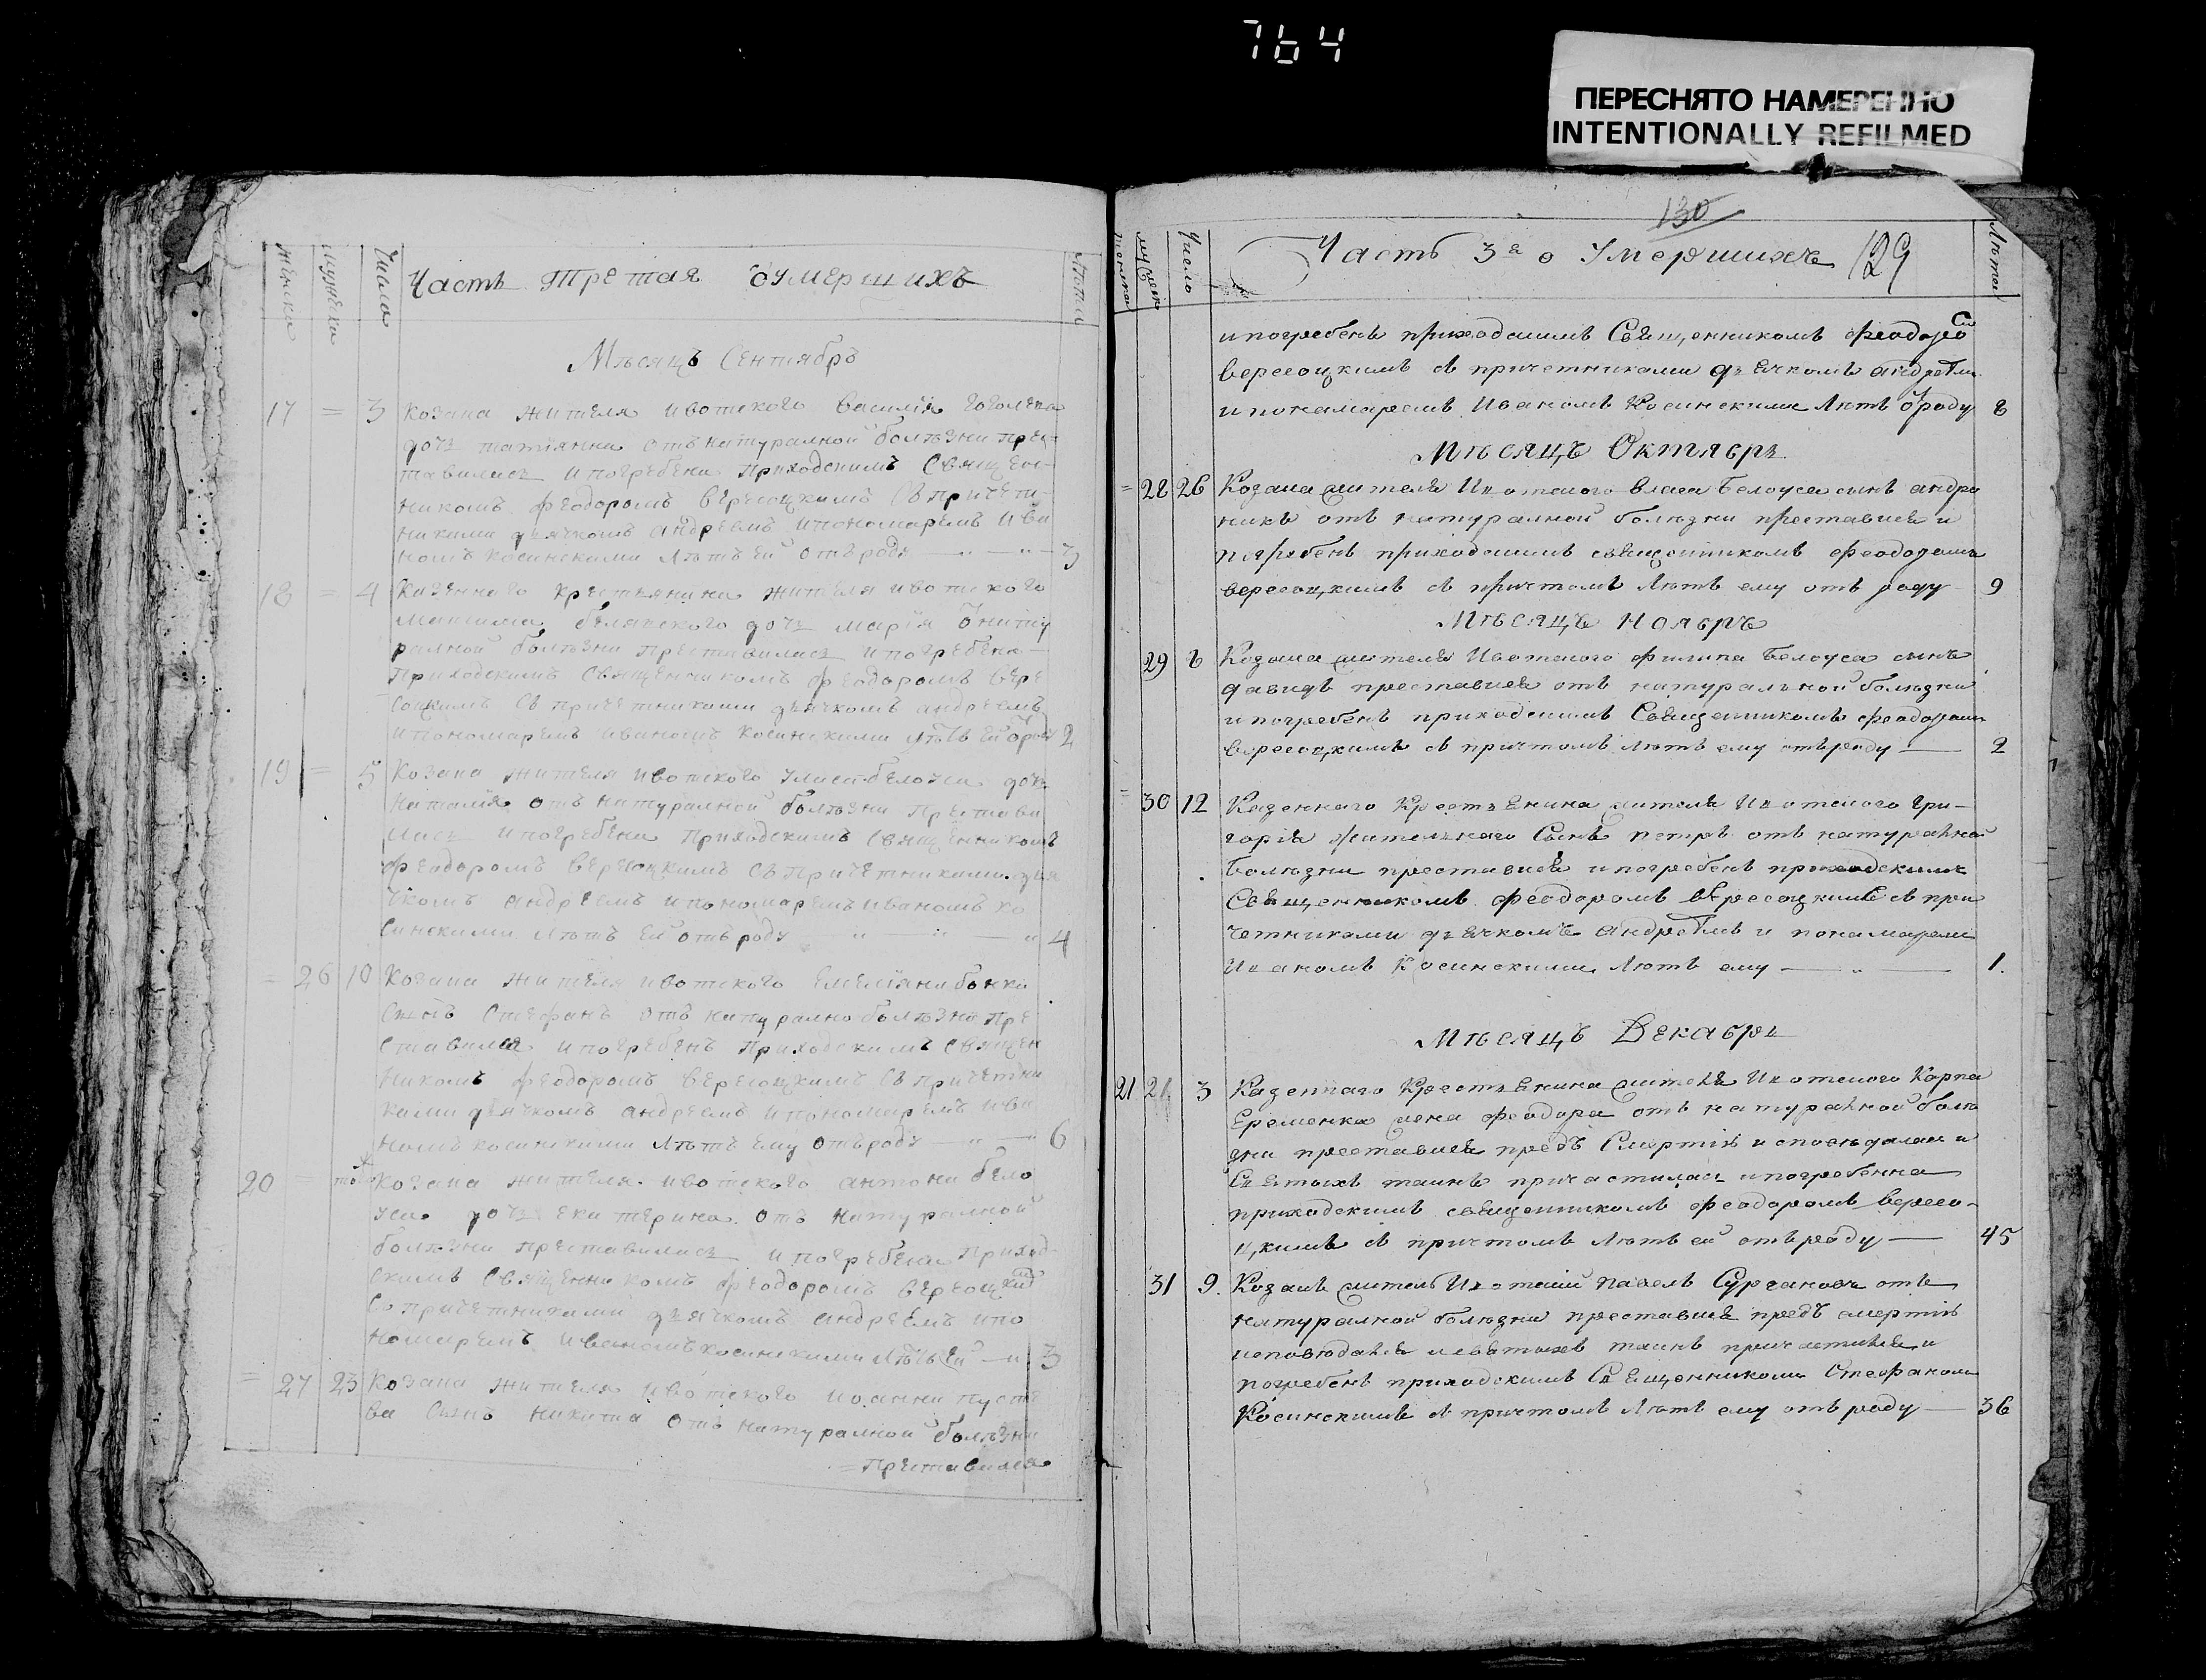 764
ПЕРЕСНЯТО НАМЕРЕННО
INTENTIONALLY REFILMED
женска
мужеска
Числа
Часть третая оумершихъ
Лѣта
Мѣсяцъ Сентябрь
17 = 3 Козака жителя ивотского Василія
дочь татіянна отъ натуралной болѣзни прес-
тавилась и погребена приходскимъ Священ-
никомъ феодоромъ вересоцкимъ съ причет-
никами дьячкомъ андреемъ и пономаремъ ива
номъ косинскими лѣтъ ей отъ роду — " — " — 3
18 = 4 Казенного крестьянина жителя ивотского
Максима дочь марія Ѿ нату
ралной болѣзни преставилась и погребена
приходскимъ Священникомъ феодоромъ вере
соцкимъ съ причетниками дьячкомъ андреемъ
и пономаремъ иваномъ косинскими лѣтъ ей Ѿ роду 2
19 = 5 Козака жителя ивотского власа белоуса дочь
наталія отъ натуралной болѣзни престави
лась и погребена приходскимъ священникомъ
феодоромъ вересоцкимъ съ причетниками дья
чкомъ андреемъ и пономаремъ иваномъ ко
синскими лѣтъ ей отъ роду " — " — " 4
= 26 10 Козака жителя ивотского Емеліяна бокка
сынъ Стефанъ отъ натуралной болѣзни пре
ставился и погребенъ приходскимъ священ
никомъ феодоромъ вересоцкимъ съ причетни
ками дьячкомъ андреемъ и пономаремъ ива
номъ косинскими лѣтъ ему отъ роду — " — " 6
20 = Козака жителя ивотского антона бело
уса дочь екатерина отъ натуралной
болѣзни преставилась и погребена приход-
скимъ Священникомъ феодоромъ вересоцким
со причетниками дьячкомъ андреемъ и по
номаремъ иваномъ косинскими лѣтъ ей — " 3
= 27 23 Козака жителя ивотского иоанна
ва сынъ никита отъ натуралной болѣзни
= преставился
130
женска
мужеск
Число
Часть 3а о Умершихъ
129
Лѣта
и погребенъ приходскимъ Священникомъ феодоро
вересоцкимъ съ причетниками дьячкомъ андреем
и понамаремъ Иваномъ Косинскими Лѣтъ Ѿроду 8
Мѣсяцъ Октябрь
= 28 26 Козака жителя Ивотского власа Белоуса сынъ андро
никъ отъ натуралной болѣзни преставися и
погребенъ приходскимъ священникомъ феодоромъ
вересоцкимъ съ причтомъ Лѣтъ ему отъ роду 9
Мѣсяцъ Ноябрь
29 6 Козака жителя Ивотского Филипа Белоуса сынъ
давидъ преставися отъ натуральной болѣзни
и погребенъ приходскимъ Священникомъ феодоромъ
вересоцкимъ съ причтомъ Лѣтъ ему отъ роду — 2
= 30 12 Казенного Крестьянина жителя Ивотского Гри-
горія Сынъ петръ отъ натуралной
Болѣзни преставися и погребенъ приходскимъ
Священникомъ феодоромъ вересоцкимъ съ при
четниками дьячкомъ андреемъ и понамаремъ
Иваномъ Косинскими Лѣтъ ему — " — 1.
Мѣсяцъ Декабрь
21 21 3 Казенного Крестьянина жителя Ивотского Карпа
Еременка жена феодора отъ натуралной болѣ
зни преставися предъ Смертію исповѣдалась и
Святыхъ таинъ причастилась и погребенна
приходскимъ священникомъ феодоромъ вересо-
цкимъ съ причтомъ Лѣтъ ей отъ роду — 45
31 9. Козакъ житель Ивотскій павелъ Сургановъ отъ
натуралной болѣзни преставися предъ смертію
исповѣдался и святыхъ таинъ причастился и
погребенъ приходскимъ Священникомъ Стефаномъ
Косинскимъ съ причтомъ Лѣтъ ему отъ роду — 36